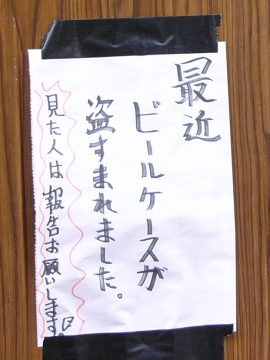 最近
ビールケースが
盗すまれました。
見た人は報告お願いします。